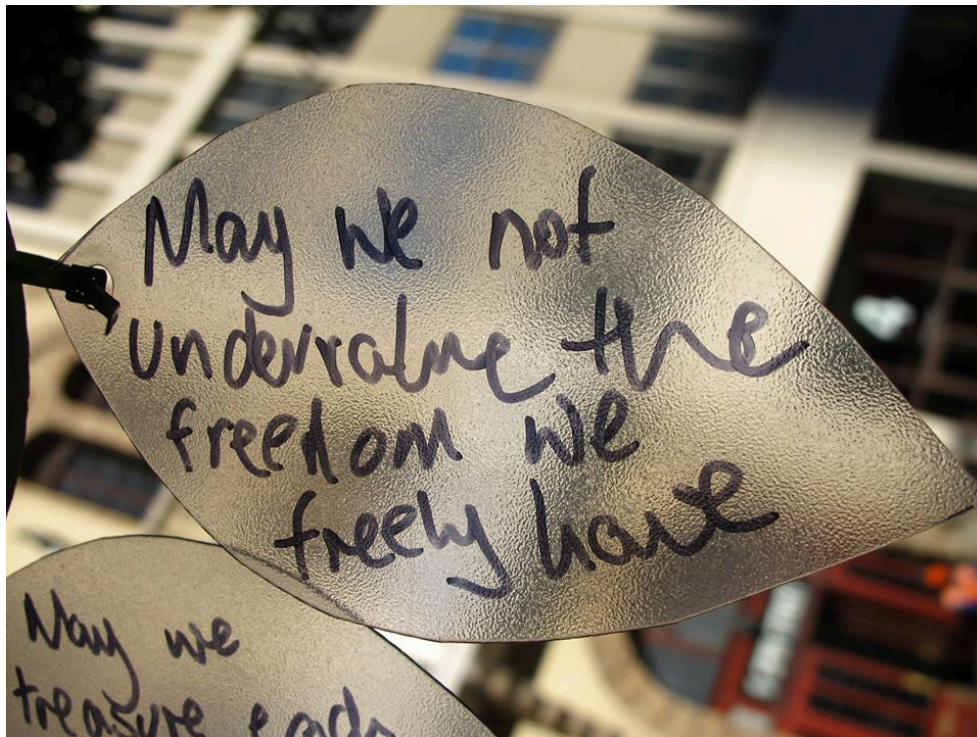 May we not
undervalue the
freedom we
freely have
May we
treasure each